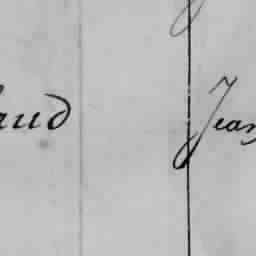 aud Jean